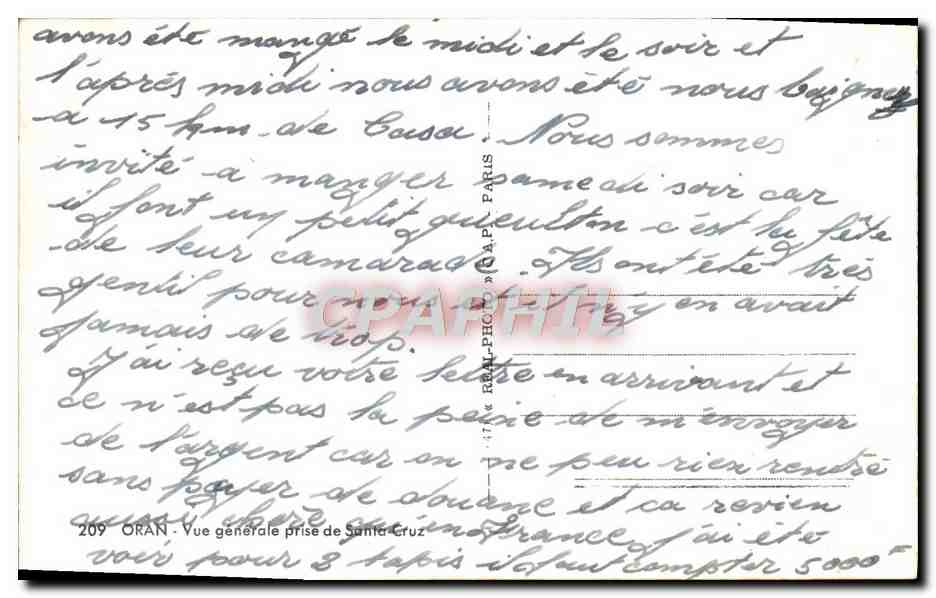 avons été mangé le midi et le soir et
l'après midi nous avons été nous baigner
a 15 km de Casa. Nous sommes
invité a manger samedi soir car
il font un petit gueulton c'est la fête
de leur camarade. Ils ont été très
gentil pour nous et il n'y en avait
jamais de trop.
J'ai reçu votre lettre en arrivant et
ce n'est pas la peine de m'envoyer
de l'argent car on ne peu rien rendre
sans payer de douane et ca revien
aussi chère qu'en France, j'ai été
voir pour 2 tapis il faut compter 5000F
209 ORAN - Vue générale prise de Santa-Cruz
« REAL-PHOTO » (C.A.P.) - PARIS
CPAPHIL